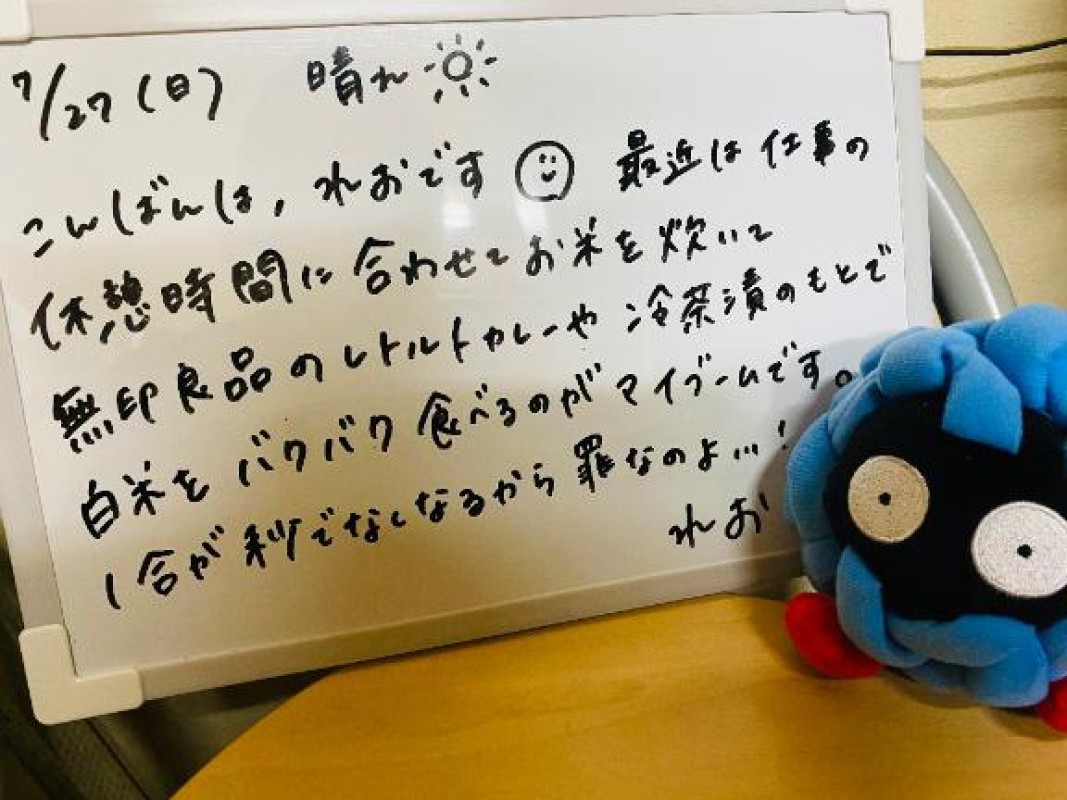 7/27(日) 晴れ
こんばんは, れおです 最近は仕事の
休憩時間に合わせてお米を炊いて
無印良品のレトルトカレーや冷茶漬のもとで
白米をバクバク食べるのがマイブームです。
1合が秒でなくなるから罪なのよ...!
れお